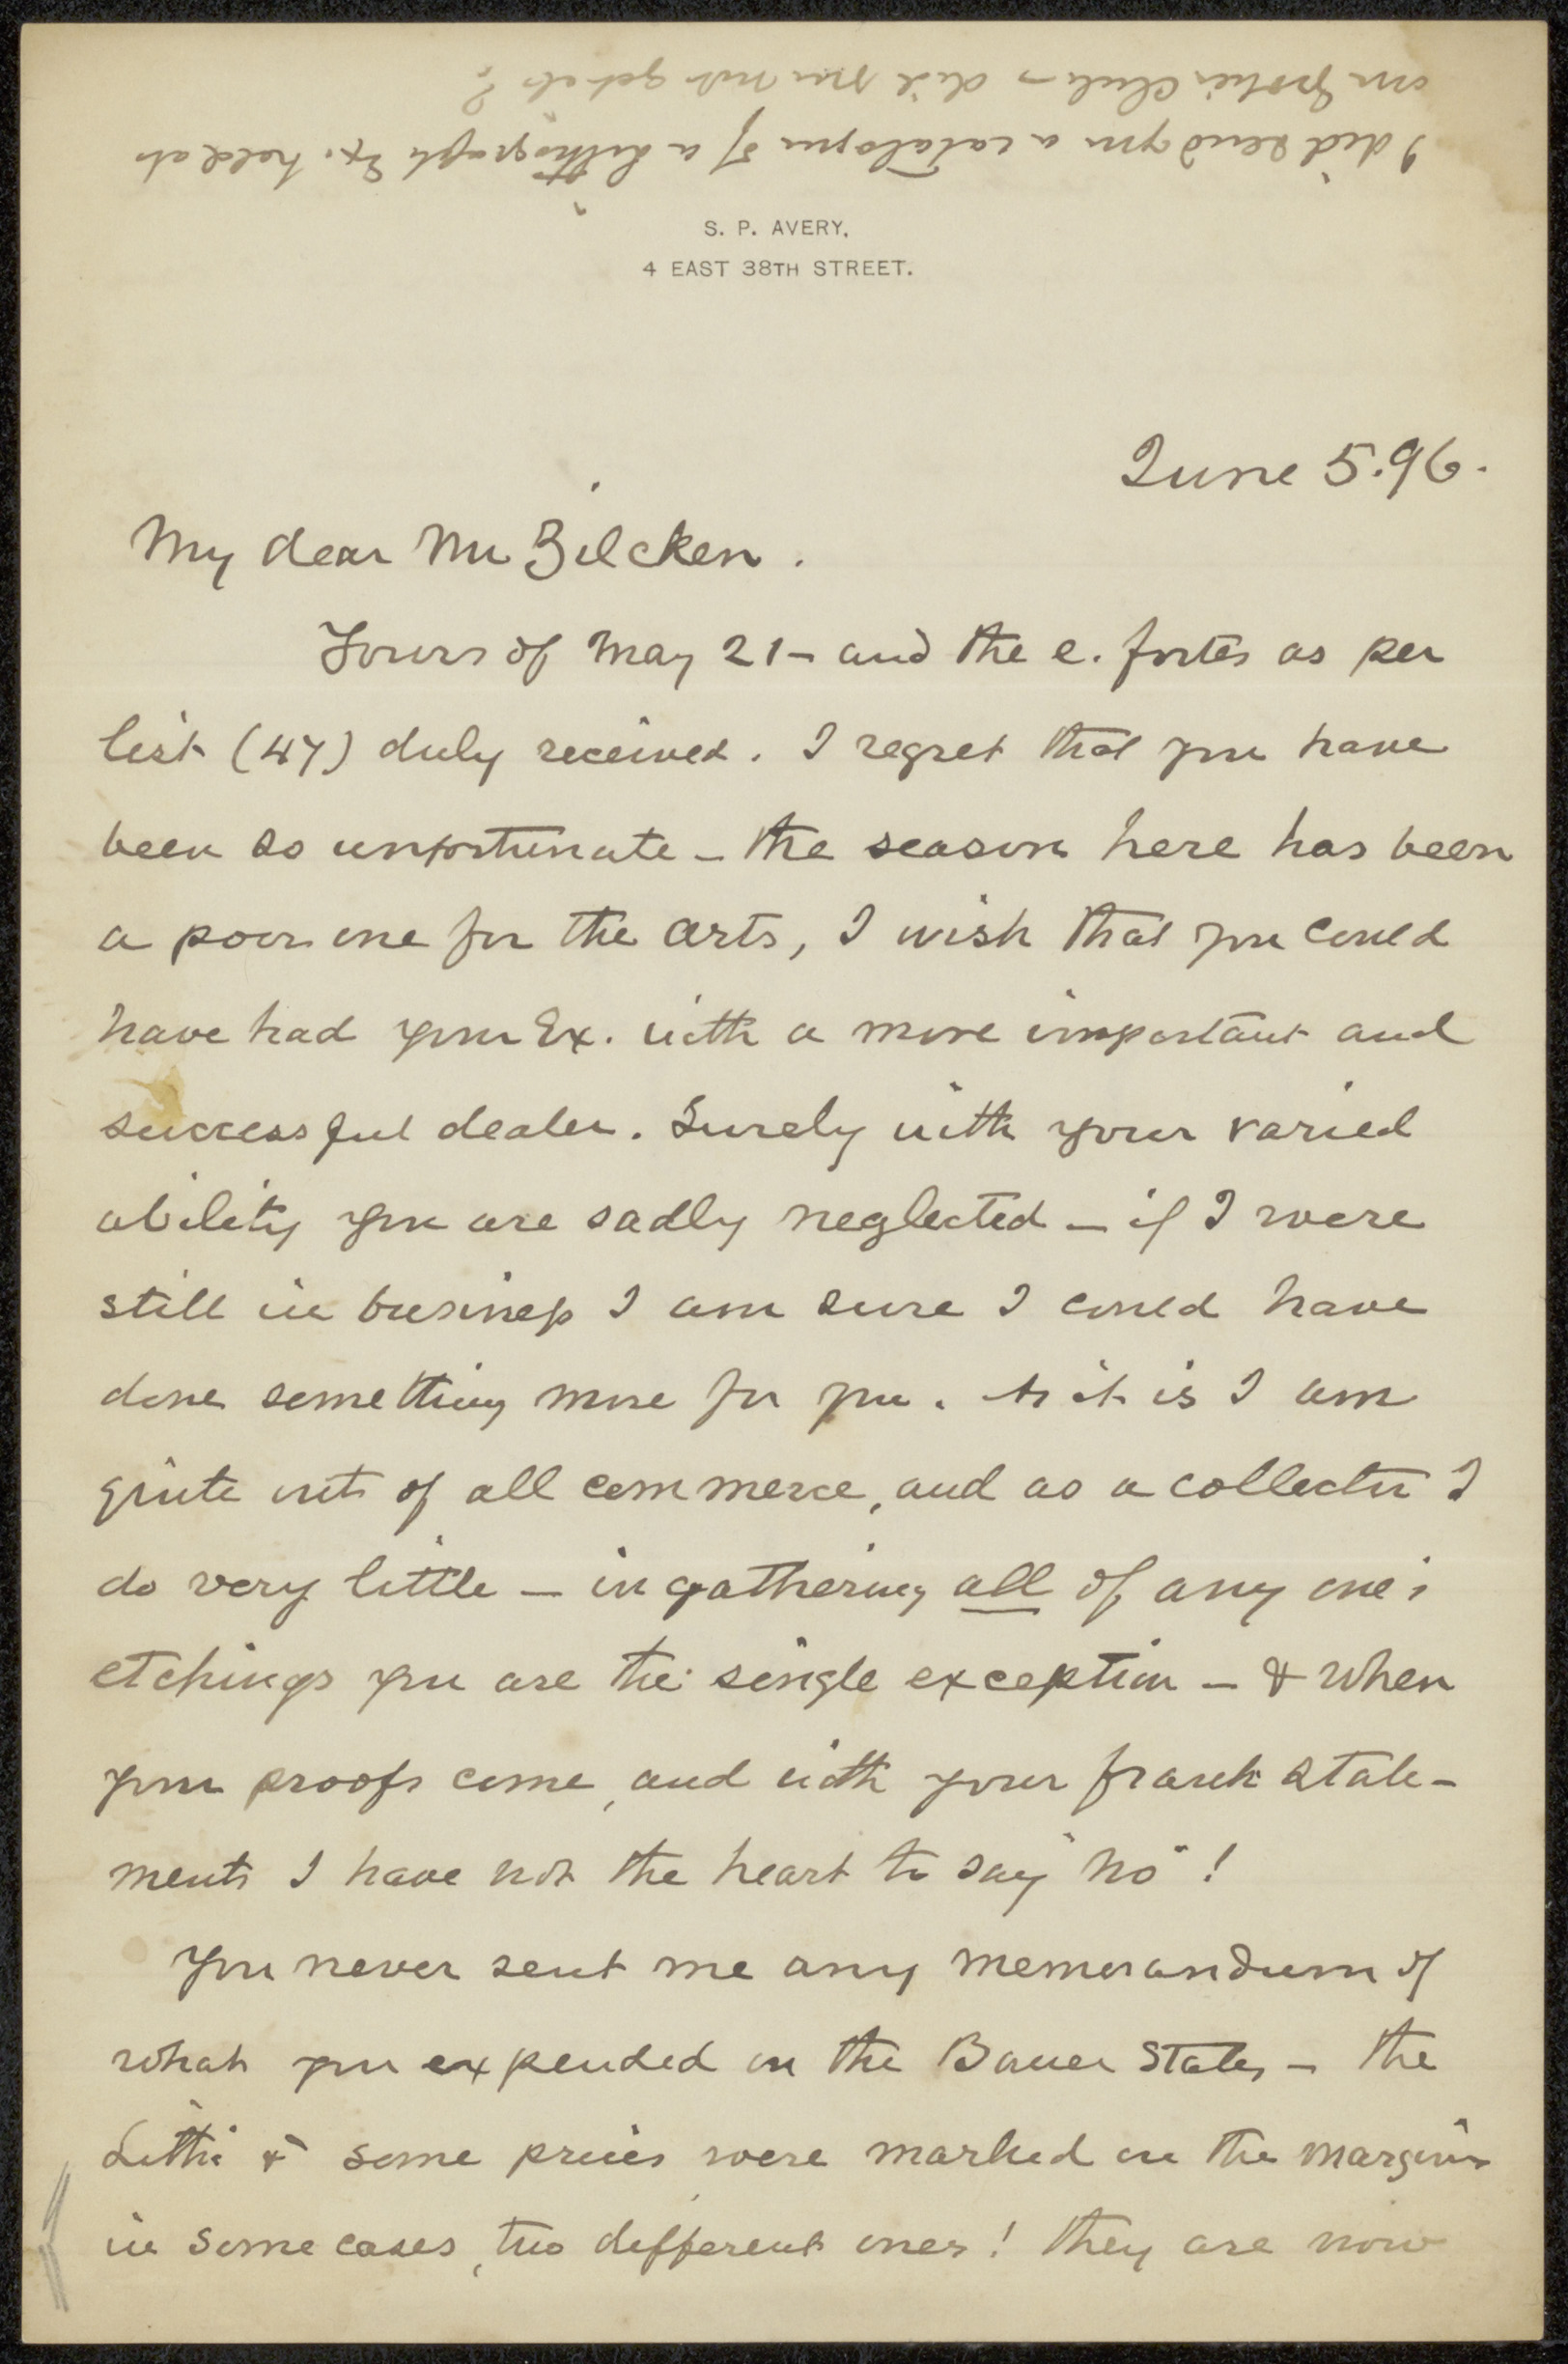 I did send you a catalogue of a Lithograph Ex. held at
our Grolier Club - did you not get it?
S. P. AVERY,
4 EAST 38TH STREET.
June 5. 96.
My dear Mr Zilcken.
Yours of May 21 - and the e. fortes as per
list (47) duly received. I regret that you have
been so unfortunate - the season here has been
a poor one for the arts, I wish that you could
have had your Ex. with a more important and
successful dealer. Surely with your varied
ability you are sadly neglected - if I were
still in business I am sure I could have
done something more for you. As it is I am
quite out of all commerce, and as a collector I
do very little - in gathering all of any one's
etchings you are the single exception - & when
your proofs come, and with your frank state-
ments I have not the heart to say "no"!
You never sent me any memorandum of
what you expended on the Bauer States - the
Litho & some prices were marked on the margins
in some cases, two different ones! they are now